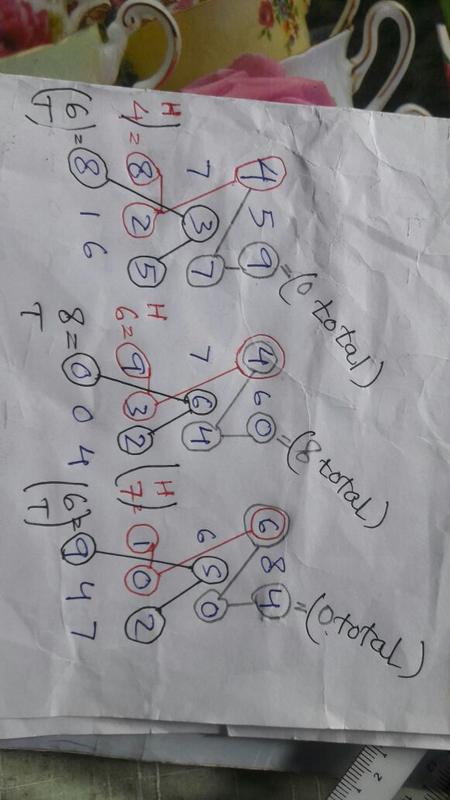 4 5 9 = (0 total) 4 6 0 = (8 total) 6 8 4 = (0 total)
7 3 7 7 6 4 6 5 0
H H H
4) = 8 2 5 6 = 9 3 2 (7 = 1 0 2
(6) = 8 1 6 8 = 0 0 4 (6 = 9 4 7
T T T)
1 2